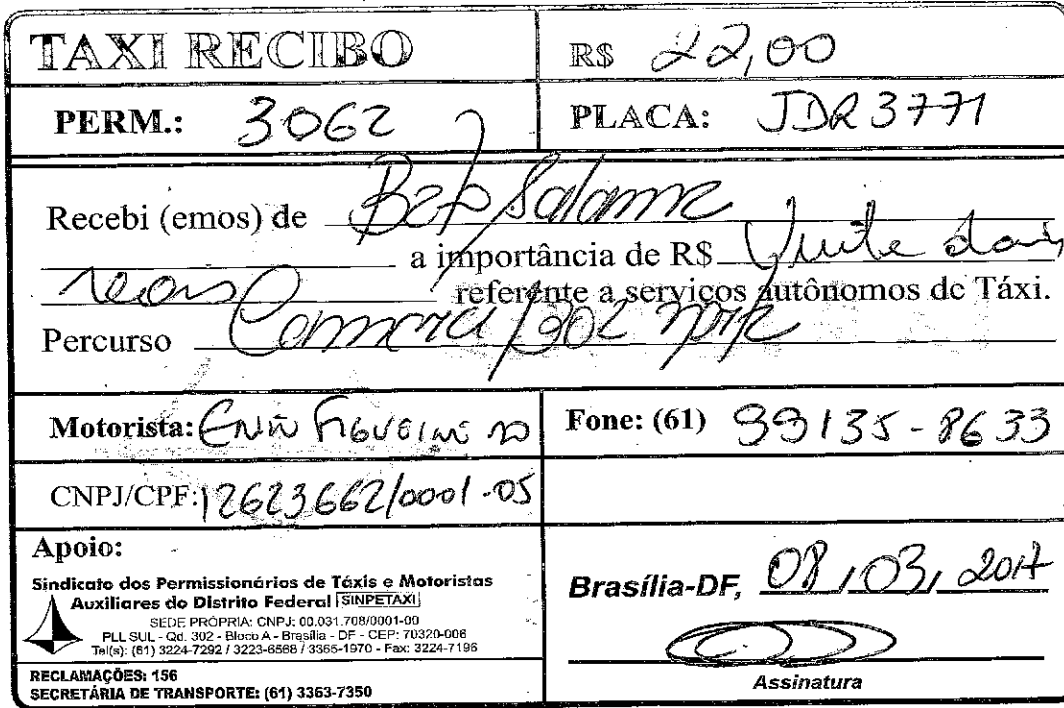 TAXI RECIBO
R$ 22,00
PERM.: 3062
PLACA: JDR 3771
Recebi (emos) de Beto Salame
a importância de R$ Vinte dois
reais referente a serviços autônomos de Táxi.
Percurso Camara / 302 norte
Motorista: Enio Figueiredo
Fone: (61) 99135-8633
CNPJ/CPF: 12623662/0001-05
Apoio:
Sindicato dos Permissionários de Táxis e Motoristas
Auxiliares do Distrito Federal SINPETAXI
SEDE PRÓPRIA: CNPJ: 00.031.708/0001-00
PLL SUL - Qd. 302 - Bloco A - Brasília - DF - CEP: 70320-006
Tel(s): (61) 3224-7292 / 3223-6568 / 3365-1970 - Fax: 3224-7196
RECLAMAÇÕES: 156
SECRETÁRIA DE TRANSPORTE: (61) 3363-7350
Brasília-DF, 08, 03, 2017
Assinatura